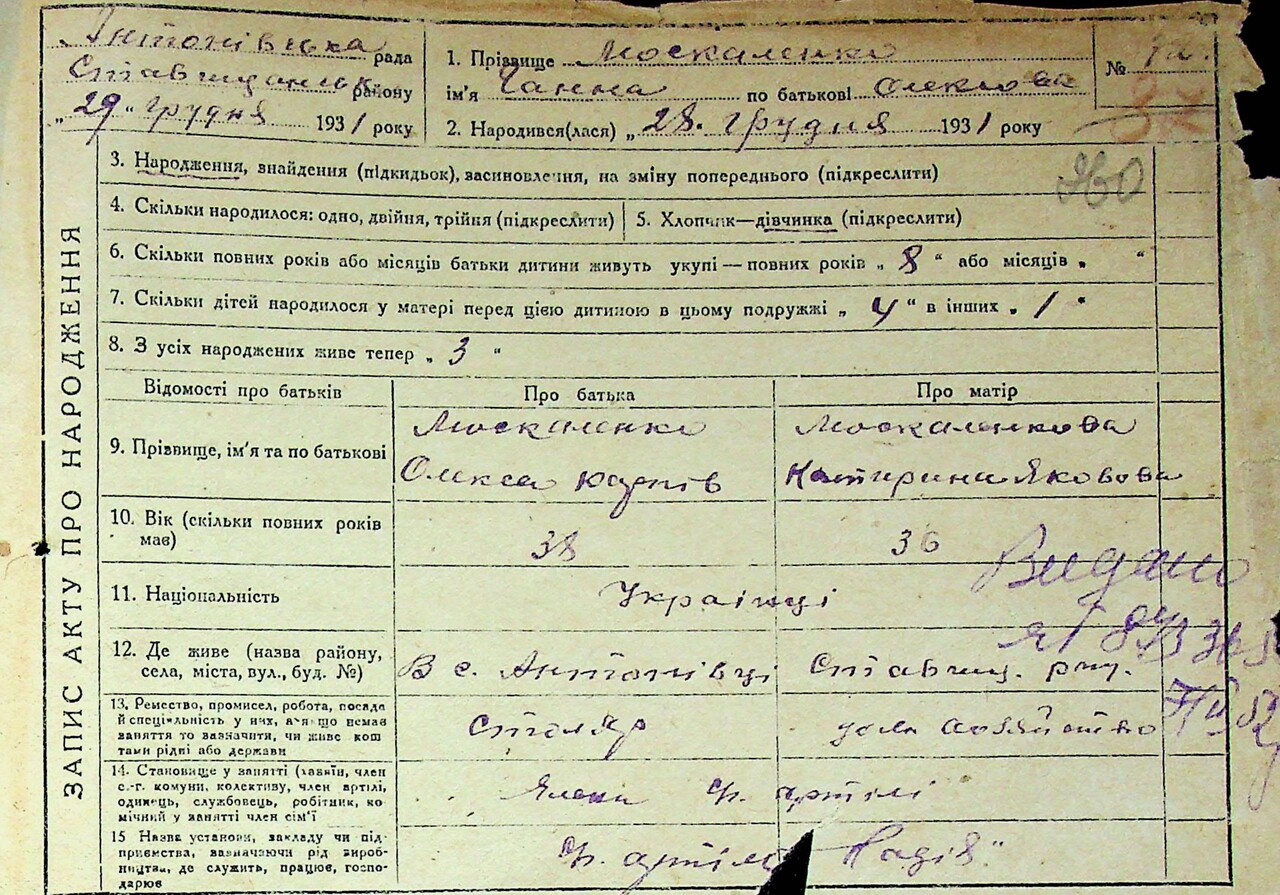 ЗАПИС АКТУ ПРО НАРОДЖЕННЯ
Антонівська рада
Ставищанськ району
„29" грудня 1931 року
1. Прізвище Москаленко
ім'я Ганна по батькові Олексова
2. Народився(лася) „28. грудня 1931 року
№ 72.
3. Народження, знайдення (підкидьок), засиновлення, на зміну попереднього (підкреслити)
4. Скільки народилося: одно, двійня, трійня (підкреслити)
5. Хлопчик—дівчинка (підкреслити)
6. Скільки повних років або місяців батьки дитини живуть укупі — повних років „ 8 " або місяців „ "
7. Скільки дітей народилося у матері перед цією дитиною в цьому подружжі „ 4 " в інших „ 1 "
8. З усіх народжених живе тепер „ 3 "
Відомості про батьків
Про батька
Про матір
9. Прізвище, ім'я та по батькові
Москаленко
Олекса Карпів
Москаленкова
Катирина Яковова
10. Вік (скільки повних років має)
38
36
11. Національність
Українці
12. Де живе (назва району,
села, міста, вул., буд. №)
В с. Антонівці
Ставищ. рну.
13. Ремество, промисел, робота, посада
й спеціяльність у них, а якщо немає
заняття то зазначити, чи живе кош
тами рідні або держави
Столяр
14. Становище у занятті (хазяїн, член
с.-г. комуни, колективу, член артілі,
одинець, службовець, робітник, ко
мічний у занятті член сім'ї
артілі
15 Назва установи, закладу чи під-
приємства, зазначаючи рід вироб-
ництва, де служить, працює, госпо-
дарює
Надія"
Видано